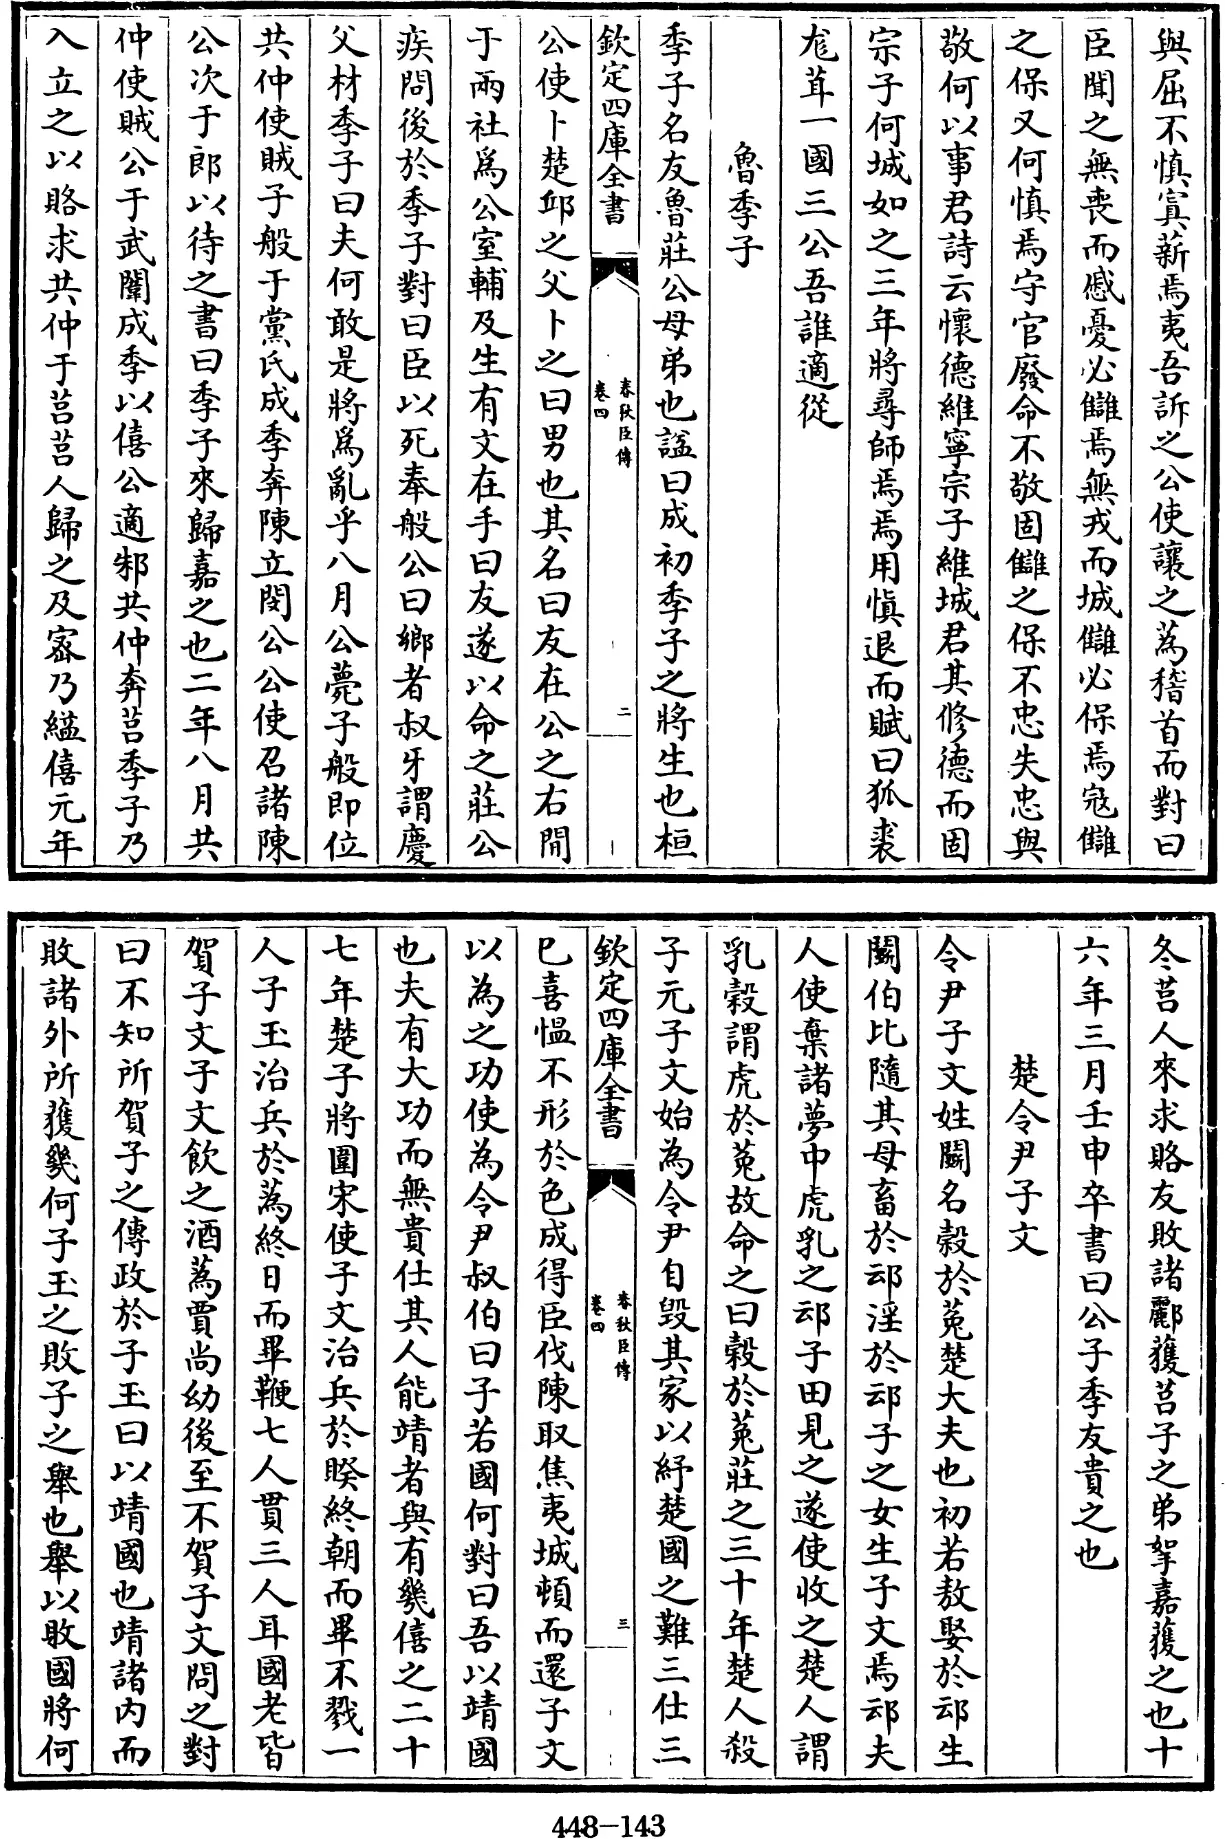 與屈不慎寘薪焉夷吾訴之公使讓之蒍稽首而對曰
臣聞之無喪而慼憂必讎焉無戎而城讎必保焉寇讎
之保又何慎焉守官廢命不敬固讎之保不忠失忠與
敬何以事君詩云懷德維寧宗子維城君其修德而固
宗子何城如之三年將尋師焉焉用慎退而賦曰狐裘
尨茸一國三公吾誰適從
魯季子
季子名友魯莊公母弟也諡曰成初季子之將生也桓
欽定四庫全書
春秋臣傳
卷四
二
公使卜楚邱之父卜之曰男也其名曰友在公之右間
于兩社為公室輔及生有文在手曰友遂以命之莊公
疾問後於季子對曰臣以死奉般公曰鄉者叔牙謂慶
父材季子曰夫何敢是將為亂乎八月公薨子般即位
共仲使賊子般于黨氏成季奔陳立閔公公使召諸陳
公次于郎以待之書曰季子來歸嘉之也二年八月共
仲使賊公于武闈成季以僖公適邾共仲奔莒季子乃
入立之以賂求共仲于莒莒人歸之及宻乃縊僖元年
冬莒人來求賂友敗諸酈獲莒子之弟挐嘉獲之也十
六年三月壬申卒書曰公子季友貴之也
楚令尹子文
令尹子文姓鬭名穀於菟楚大夫也初若敖娶於䢵生
鬭伯比隨其母畜於䢵淫於䢵子之女生子文焉䢵夫
人使棄諸夢中虎乳之䢵子田見之遂使收之楚人謂
乳穀謂虎於菟故命之曰穀於菟莊之三十年楚人殺
子元子文始為令尹自毀其家以紓楚國之難三仕三
欽定四庫全書
春秋臣傳
卷四
三
已喜愠不形於色成得臣伐陳取焦夷城頓而還子文
以為之功使為令尹叔伯曰子若國何對曰吾以靖國
也夫有大功而無貴仕其人能靖者與有幾僖之二十
七年楚子將圍宋使子文治兵於睽終朝而畢不戮一
人子玉治兵於蒍終日而畢鞭七人貫三人耳國老皆
賀子文子文飲之酒蒍賈尚幼後至不賀子文問之對
曰不知所賀子之傳政於子玉曰以靖國也靖諸内而
敗諸外所獲幾何子玉之敗子之舉也舉以敗國將何
448-143